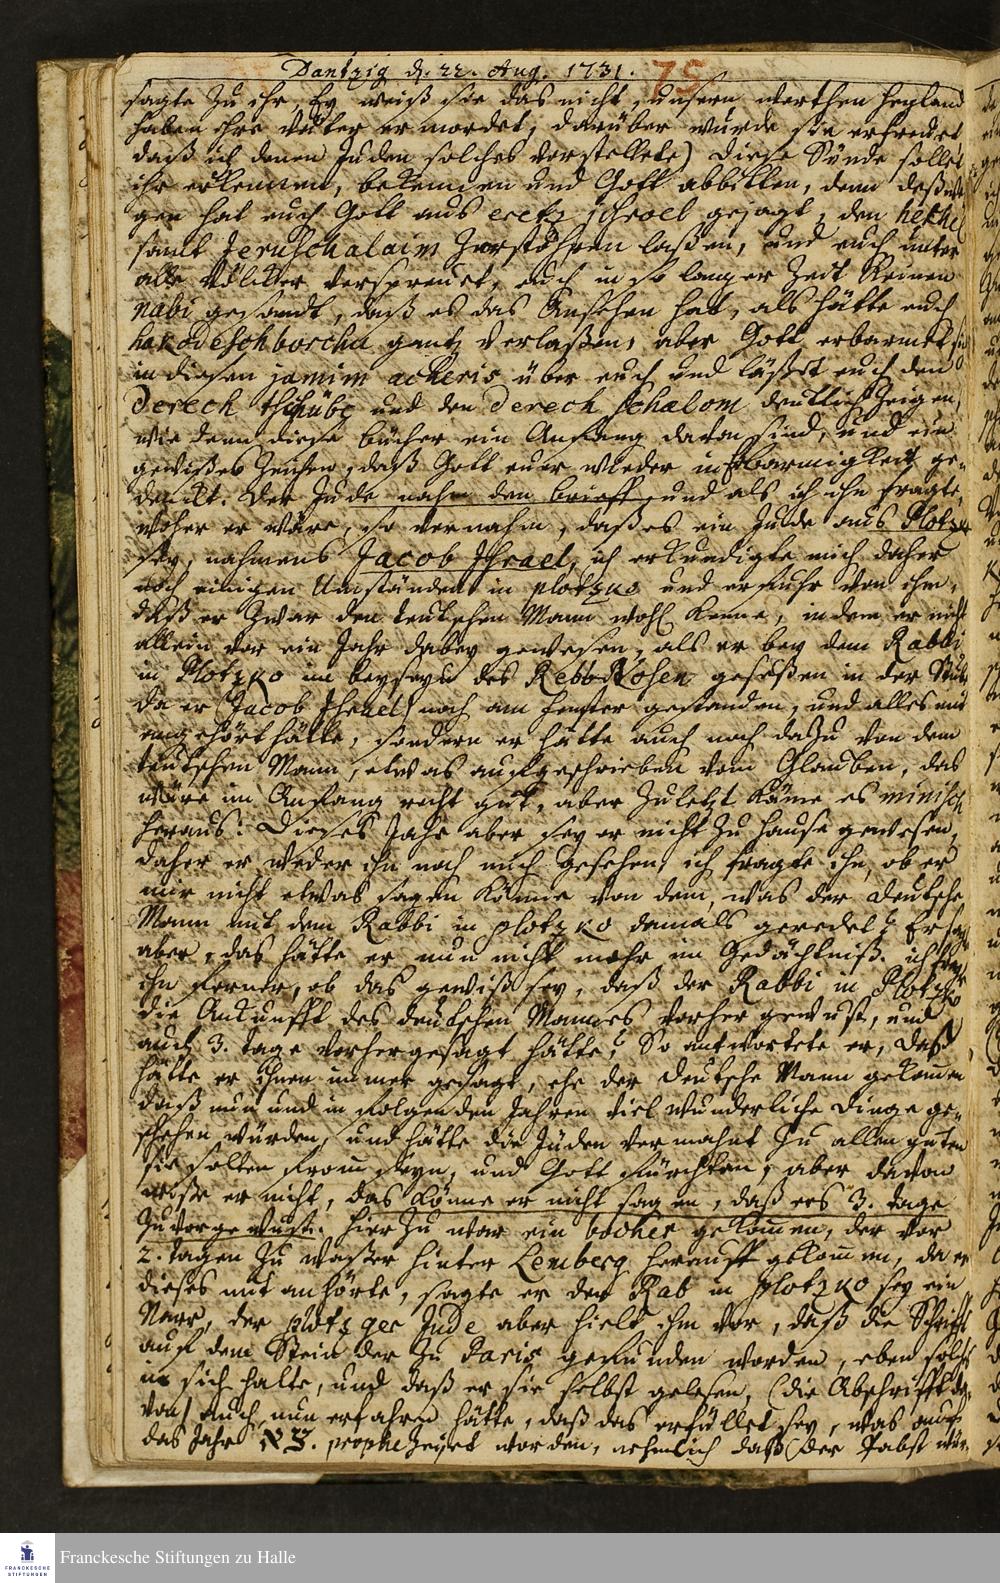 Dantzig d. 22. Aug. 1731.
75
sagte zu ihr, Ey weiß sie das nicht, unsern werthen Heyland
haben ihre Väter ermordet, darüber wurde sie erfreuet
daß ich denen Juden solches vorstellete) diese Sünde sollet
ihr erkennen, bekennen und Gott abbitten, denn deßwe-
gen hat euch Gott aus eretz jsroel gejagt, den hekhel
samt Jeruschalaim zerstöhren laßen, und euch unter
alle Völcker verstreuet, auch in so langer Zeit keinen
nabi gesandt, daß es das Ansehen hat, als hätte euch
hakodeschborchu gantz verlaßen, aber Gott erbarmet sich
in diesen jamim acheris über euch und läßet euch den
derech thschübe und den derech schalom deutlich zeigen,
wie denn diese bücher ein Anfang davon sind, und ein
gewißes Zeichen, daß Gott euer wieder in Erbarmigkeit ge-
denckt. Der Jude nahm den brieff, und als ich ihn fragte,
woher er wäre, so vernahm, daß es ein Jude aus Plotzko
sey, nahmens Jacob Jsrael, ich erkundigte mich daher
nach einigen Umständen in plotzko und erfuhr von ihm,
daß er zwar den teutschen Mann wohl kenne, in dem er nicht
allein vor ein Jahr dabey gewesen, als er bey dem Rabbi
in Plotzko im beyseyn des Rebb Kosen geseßen in der Stube
da er (Jacob Jsrael) noch am fenster gestanden, und alles mit
angehört hätte, sondern er hätte auch noch dazu von dem
teutschen Mann, etwas aufgeschrieben vom Glauben, das
wäre im Anfang recht gut, aber zuletzt käme es minisch
heraus: Dieses Jahr aber sey er nicht zu hause gewesen,
daher er weder ihn noch mich gesehen, ich fragte ihn, ob er
mir nicht etwas sagen könne von dem, was der deutsche
Mann mit dem Rabbi in plotzko damals geredet? Er sagte
aber, das hätte er nun nicht mehr im Gedächtniß. ich fragte
ihn ferner, ob das gewiß sey, daß der Rabbi in Plotzko
die Ankunfft des deutschen Mannes vorher gewust, und
auch 3. tage vorhergesagt hätte? So antwortete er, das
hätte er ihnen immer gesagt, ehe der deutsche Mann gekommen
daß nun und in folgenden Jahren viel wunderliche dinge ge-
schehen würden, und hätte die Jüden vermahnt zu allen guten
sie solten fromm seyn, und Gott fürchten, aber davon
wiße er nicht, das könne er nicht sagen, daß ers 3. tage
zuvor gewust. Hier zu war ein bocher gekommen, der vor
2. tagen zu waßer hinter Lemberg herauff gekommen, da er
dieses mit anhörte, sagte er der Rab in plotzko sey ein
Narr, der plotzger Jude aber hielt ihm vor, daß die Schrifft
auf dem Stein der zu Paris gefunden worden, eben solches
in sich halte, und daß er sie selbst gelesen, (die Abschrifft da-
von) auch nun erfahren hätte, daß das erfüllet sey, was auch
das Jahr prophezeyet worden, nehmlich daß der Pabst wür-
Franckesche Stiftungen zu Halle
FRANCKESCHE
STIFTUNGEN